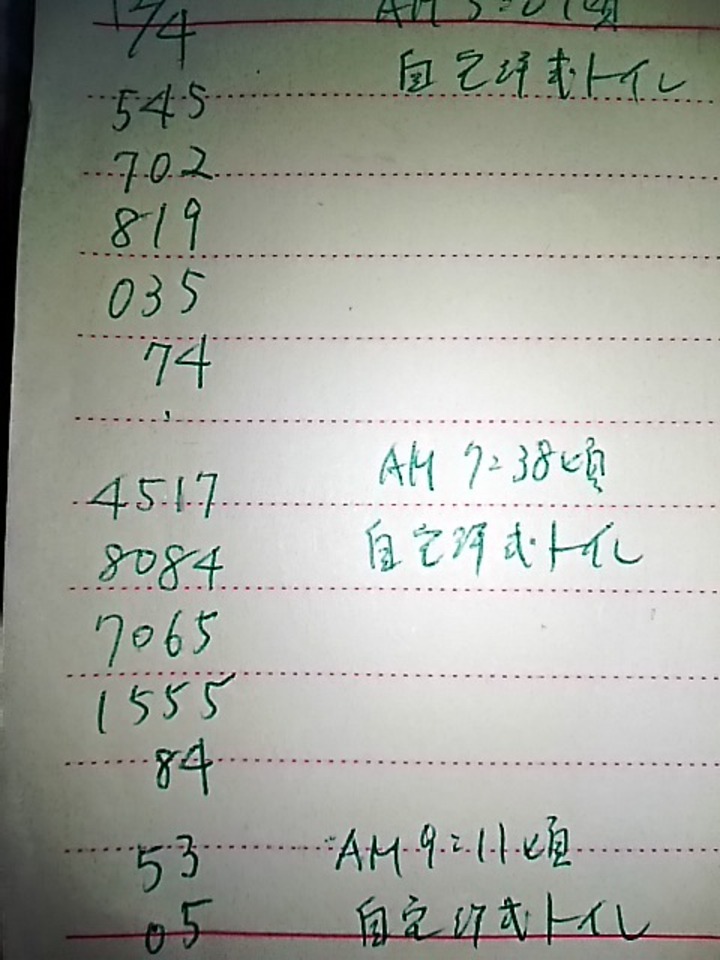 174 AM 5:01頃
自宅洋式トイレ
545
702
819
035
74
4517 AM 7:38頃
8084 自宅洋式トイレ
7065
1555
84
53 AM 9:11頃
05 自宅洋式トイレ